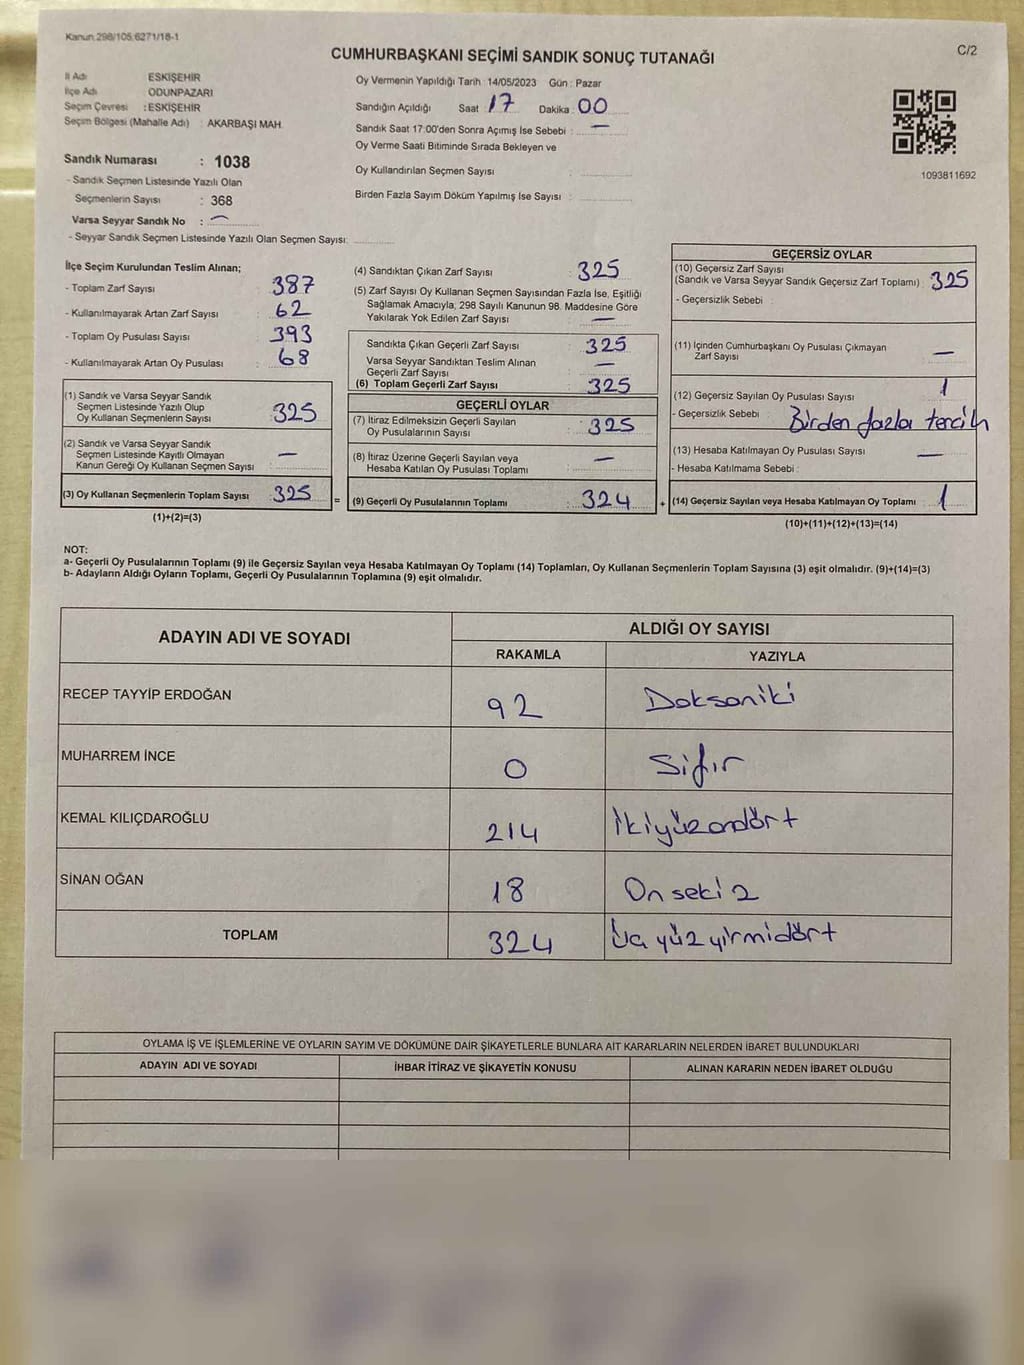 Kanun:298/105;6271/18-1
C/2
CUMHURBAŞKANI SEÇİMİ SANDIK SONUÇ TUTANAĞI
İl Adı ESKİŞEHİR
İlçe Adı ODUNPAZARI
Seçim Çevresi :ESKİŞEHİR
Seçim Bölgesi (Mahalle Adı) : AKARBAŞI MAH.
Sandık Numarası : 1038
- Sandık Seçmen Listesinde Yazılı Olan
Seçmenlerin Sayısı : 368
Varsa Seyyar Sandık No : —
- Seyyar Sandık Seçmen Listesinde Yazılı Olan Seçmen Sayısı:
Oy Vermenin Yapıldığı Tarih : 14/05/2023 Gün : Pazar
Sandığın Açıldığı Saat 17 Dakika : 00
Sandık Saat 17:00'den Sonra Açımış İse Sebebi : —
Oy Verme Saati Bitiminde Sırada Bekleyen ve
Oy Kullandırılan Seçmen Sayısı :
Birden Fazla Sayım Döküm Yapılmış İse Sayısı :
1093811692
İlçe Seçim Kurulundan Teslim Alınan;
- Toplam Zarf Sayısı : 387
- Kullanılmayarak Artan Zarf Sayısı : 62
- Toplam Oy Pusulası Sayısı : 393
- Kullanılmayarak Artan Oy Pusulası : 68
(1) Sandık ve Varsa Seyyar Sandık
Seçmen Listesinde Yazılı Olup
Oy Kullanan Seçmenlerin Sayısı : 325
(2) Sandık ve Varsa Seyyar Sandık
Seçmen Listesinde Kayıtlı Olmayan
Kanun Gereği Oy Kullanan Seçmen Sayısı : —
(3) Oy Kullanan Seçmenlerin Toplam Sayısı : 325
(1)+(2)=(3)
(4) Sandıktan Çıkan Zarf Sayısı : 325
(5) Zarf Sayısı Oy Kullanan Seçmen Sayısından Fazla İse, Eşitliği
Sağlamak Amacıyla, 298 Sayılı Kanunun 98. Maddesine Göre
Yakılarak Yok Edilen Zarf Sayısı : —
Sandıkta Çıkan Geçerli Zarf Sayısı : 325
Varsa Seyyar Sandıktan Teslim Alınan
Geçerli Zarf Sayısı : —
(6) Toplam Geçerli Zarf Sayısı : 325
GEÇERLİ OYLAR
(7) İtiraz Edilmeksizin Geçerli Sayılan
Oy Pusulalarının Sayısı : 325
(8) İtiraz Üzerine Geçerli Sayılan veya
Hesaba Katılan Oy Pusulası Toplamı : —
= (9) Geçerli Oy Pusulalarının Toplamı : 324
GEÇERSİZ OYLAR
(10) Geçersiz Zarf Sayısı
(Sandık ve Varsa Seyyar Sandık Geçersiz Zarf Toplamı) : 325
- Geçersizlik Sebebi :
(11) İçinden Cumhurbaşkanı Oy Pusulası Çıkmayan
Zarf Sayısı : —
(12) Geçersiz Sayılan Oy Pusulası Sayısı : 1
- Geçersizlik Sebebi : Birden fazla tercih
(13) Hesaba Katılmayan Oy Pusulası Sayısı : —
- Hesaba Katılmama Sebebi :
+ (14) Geçersiz Sayılan veya Hesaba Katılmayan Oy Toplamı : 1
(10)+(11)+(12)+(13)=(14)
NOT:
a- Geçerli Oy Pusulalarının Toplamı (9) ile Geçersiz Sayılan veya Hesaba Katılmayan Oy Toplamı (14) Toplamları, Oy Kullanan Seçmenlerin Toplam Sayısına (3) eşit olmalıdır. (9)+(14)=(3)
b- Adayların Aldığı Oyların Toplamı, Geçerli Oy Pusulalarının Toplamına (9) eşit olmalıdır.
ADAYIN ADI VE SOYADI ALDIĞI OY SAYISI
RAKAMLA YAZIYLA
RECEP TAYYİP ERDOĞAN 92 Doksaniki
MUHARREM İNCE 0 Sıfır
KEMAL KILIÇDAROĞLU 214 İkiyüzondört
SİNAN OĞAN 18 Onsekiz
TOPLAM 324 Üç yüz yirmidört
OYLAMA İŞ VE İŞLEMLERİNE VE OYLARIN SAYIM VE DÖKÜMÜNE DAİR ŞİKAYETLERLE BUNLARA AİT KARARLARIN NELERDEN İBARET BULUNDUKLARI
ADAYIN ADI VE SOYADI İHBAR İTİRAZ VE ŞİKAYETİN KONUSU ALINAN KARARIN NEDEN İBARET OLDUĞU